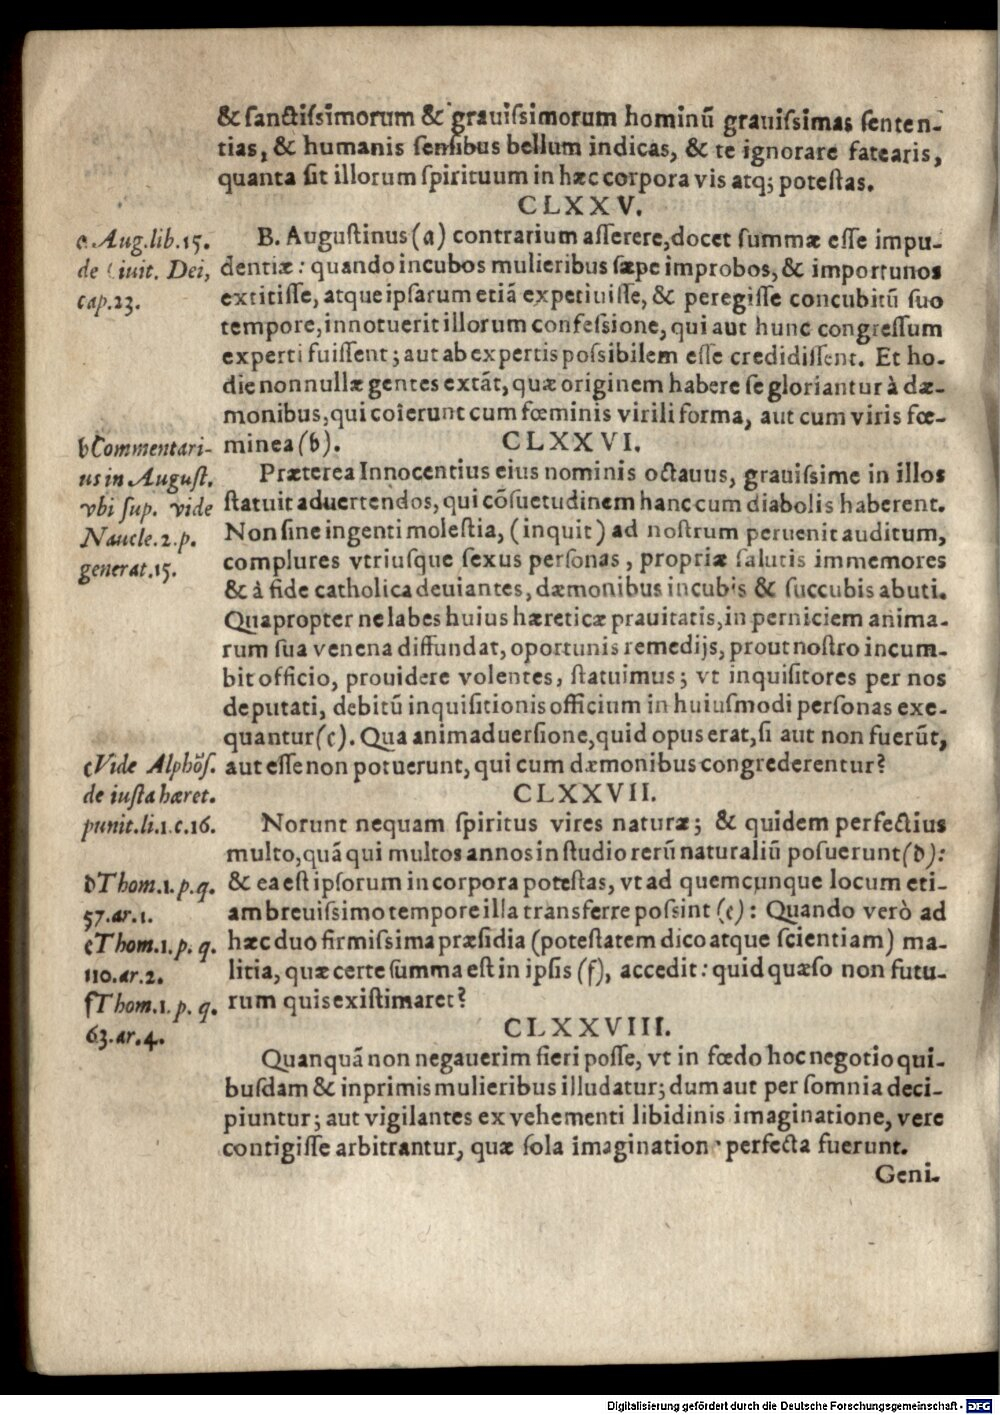 & ſanctiſsimorum & grauiſsimorum hominũ grauiſsimas ſenten-
tias, & humanis ſenſibus bellum indicas, & te ignorare fatearis,
quanta ſit illorum ſpirituum in hæc corpora vis atq; poteſtas.
CLXXV.
B. Auguſtinus (a) contrarium aſſerere, docet ſummæ eſſe impu-
dentiæ: quando incubos mulieribus ſæpe improbos, & importunos
extitiſſe, atque ipſarum etiã expetiuiſſe, & peregiſſe concubitũ ſuo
tempore, innotuerit illorum confeſsione, qui aut hunc congreſſum
experti fuiſſent; aut ab expertis poſsibilem eſſe credidiſſent. Et ho-
die nonnullæ gentes extãt, quæ originem habere ſe gloriantur à dæ-
monibus, qui coierunt cum fœminis virili forma, aut cum viris fœ-
minea (b).
a Aug. lib. 15.
de Ciuit. Dei,
cap. 23.
CLXXVI.
Præterea Innocentius eius nominis octauus, grauiſsime in illos
ſtatuit aduertendos, qui cõſuetudinem hanc cum diabolis haberent.
Non ſine ingenti moleſtia, (inquit) ad noſtrum peruenit auditum,
complures vtriuſque ſexus perſonas, propriæ ſalutis immemores
& à fide catholica deuiantes, dæmonibus incubis & ſuccubis abuti.
Quapropter ne labes huius hæreticæ prauitatis, in perniciem anima-
rum ſua venena diffundat, oportunis remedijs, prout noſtro incum-
bit officio, prouidere volentes, ſtatuimus; vt inquiſitores per nos
deputati, debitũ inquiſitionis officium in huiuſmodi perſonas exe-
quantur (c). Qua animaduerſione, quid opus erat, ſi aut non fuerũt,
aut eſſe non potuerunt, qui cum dæmonibus congrederentur?
b Commentari-
us in Auguſt.
vbi ſup. vide
Naucle. 2. p.
generat. 15.
c Vide Alphõſ.
de iuſta hæret.
punit. li. 1. c. 16.
CLXXVII.
Norunt nequam ſpiritus vires naturæ; & quidem perfectius
multo, quã qui multos annos in ſtudio rerũ naturaliũ poſuerunt (d):
& ea eſt ipſorum in corpora poteſtas, vt ad quemcunque locum eti-
am breuiſsimo tempore illa transferre poſsint (e): Quando verò ad
hæc duo firmiſsima præſidia (poteſtatem dico atque ſcientiam) ma-
litia, quæ certe ſumma eſt in ipſis (f), accedit: quid quæſo non futu-
rum quis exiſtimaret?
d Thom. 1. p. q.
57. ar. 1.
e Thom. 1. p. q.
110. ar. 2.
f Thom. 1. p. q.
63. ar. 4.
CLXXVIII.
Quanquã non negauerim fieri poſſe, vt in fœdo hoc negotio qui-
buſdam & inprimis mulieribus illudatur; dum aut per ſomnia deci-
piuntur; aut vigilantes ex vehementi libidinis imaginatione, vere
contigiſſe arbitrantur, quæ ſola imagination perfecta fuerunt.
Geni-
Digitalisierung gefördert durch die Deutsche Forschungsgemeinschaft - DFG